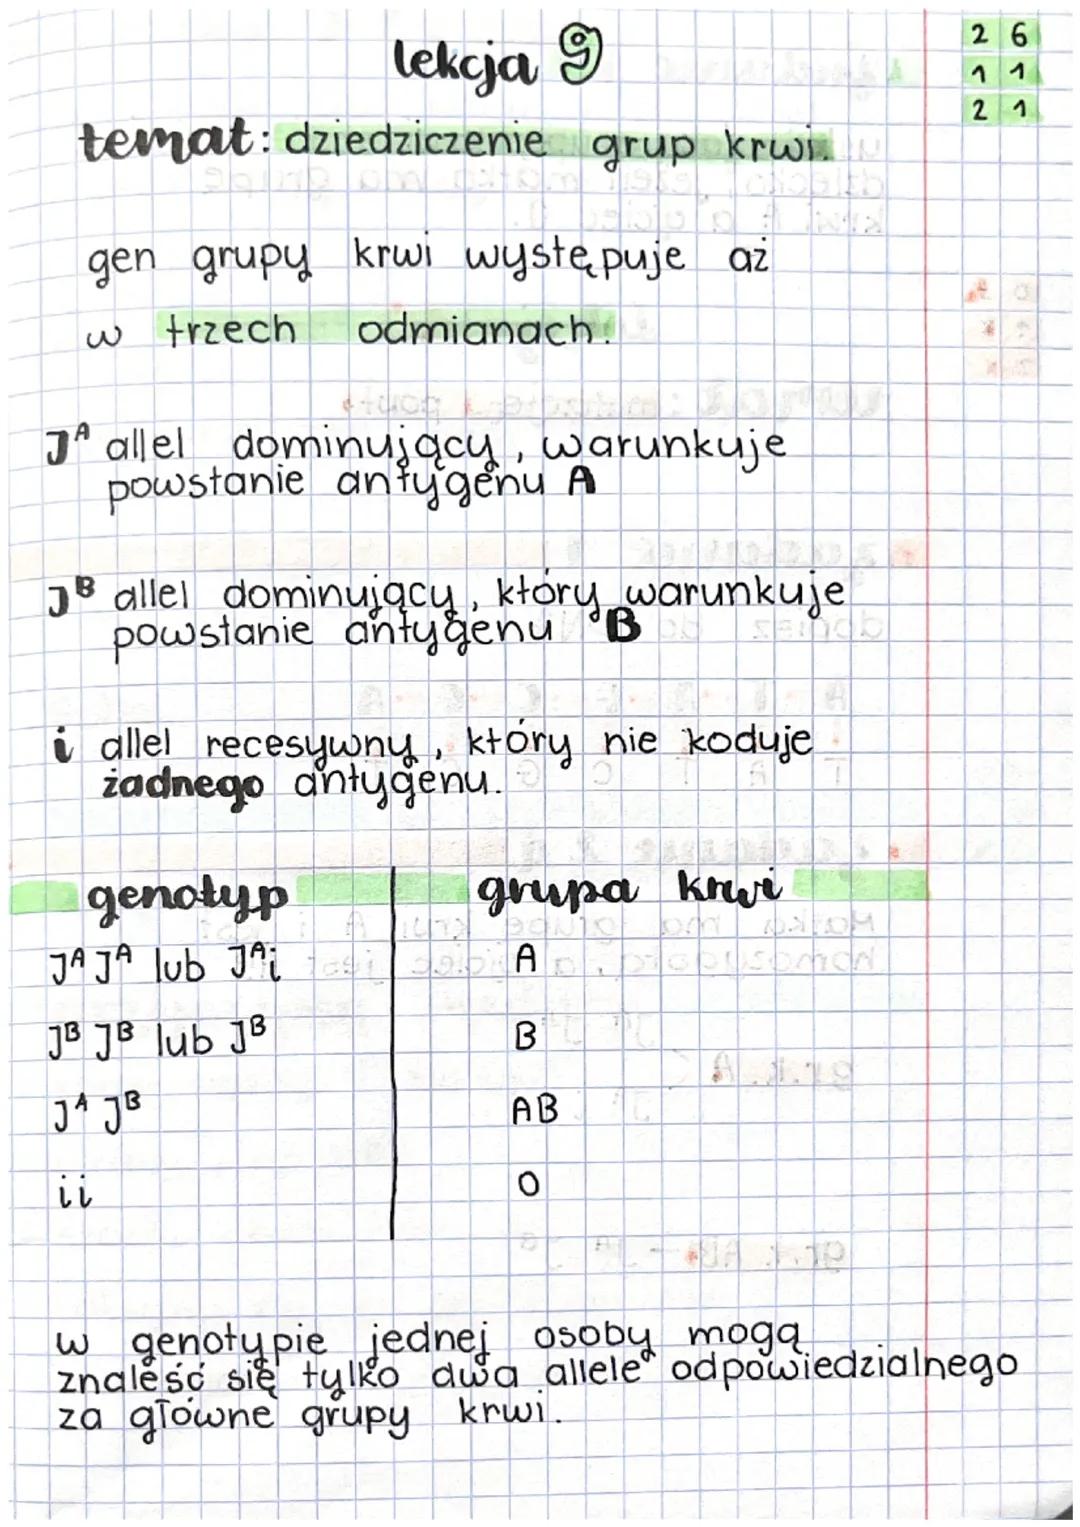 lekcja 9
2 6
1 1
2 1
temat: dziedziczenie grup krwi.
gen grupy krwi występuje aż
w trzech odmianach.
Jᴬ allel dominujący, warunkuje
powstanie antygenu A
Jᴮ allel dominujący, który warunkuje
powstanie antygenu B
i allel recesywny, który nie koduje
żadnego antygenu.
genotyp grupa krwi
Jᴬ Jᴬ lub Jᴬi A
Jᴮ Jᴮ lub Jᴮ B
Jᴬ Jᴮ AB
ii 0
w genotypie jednej osoby mogą
znaleść się tylko dwa allele odpowiedzialnego
za główne grupy krwi.